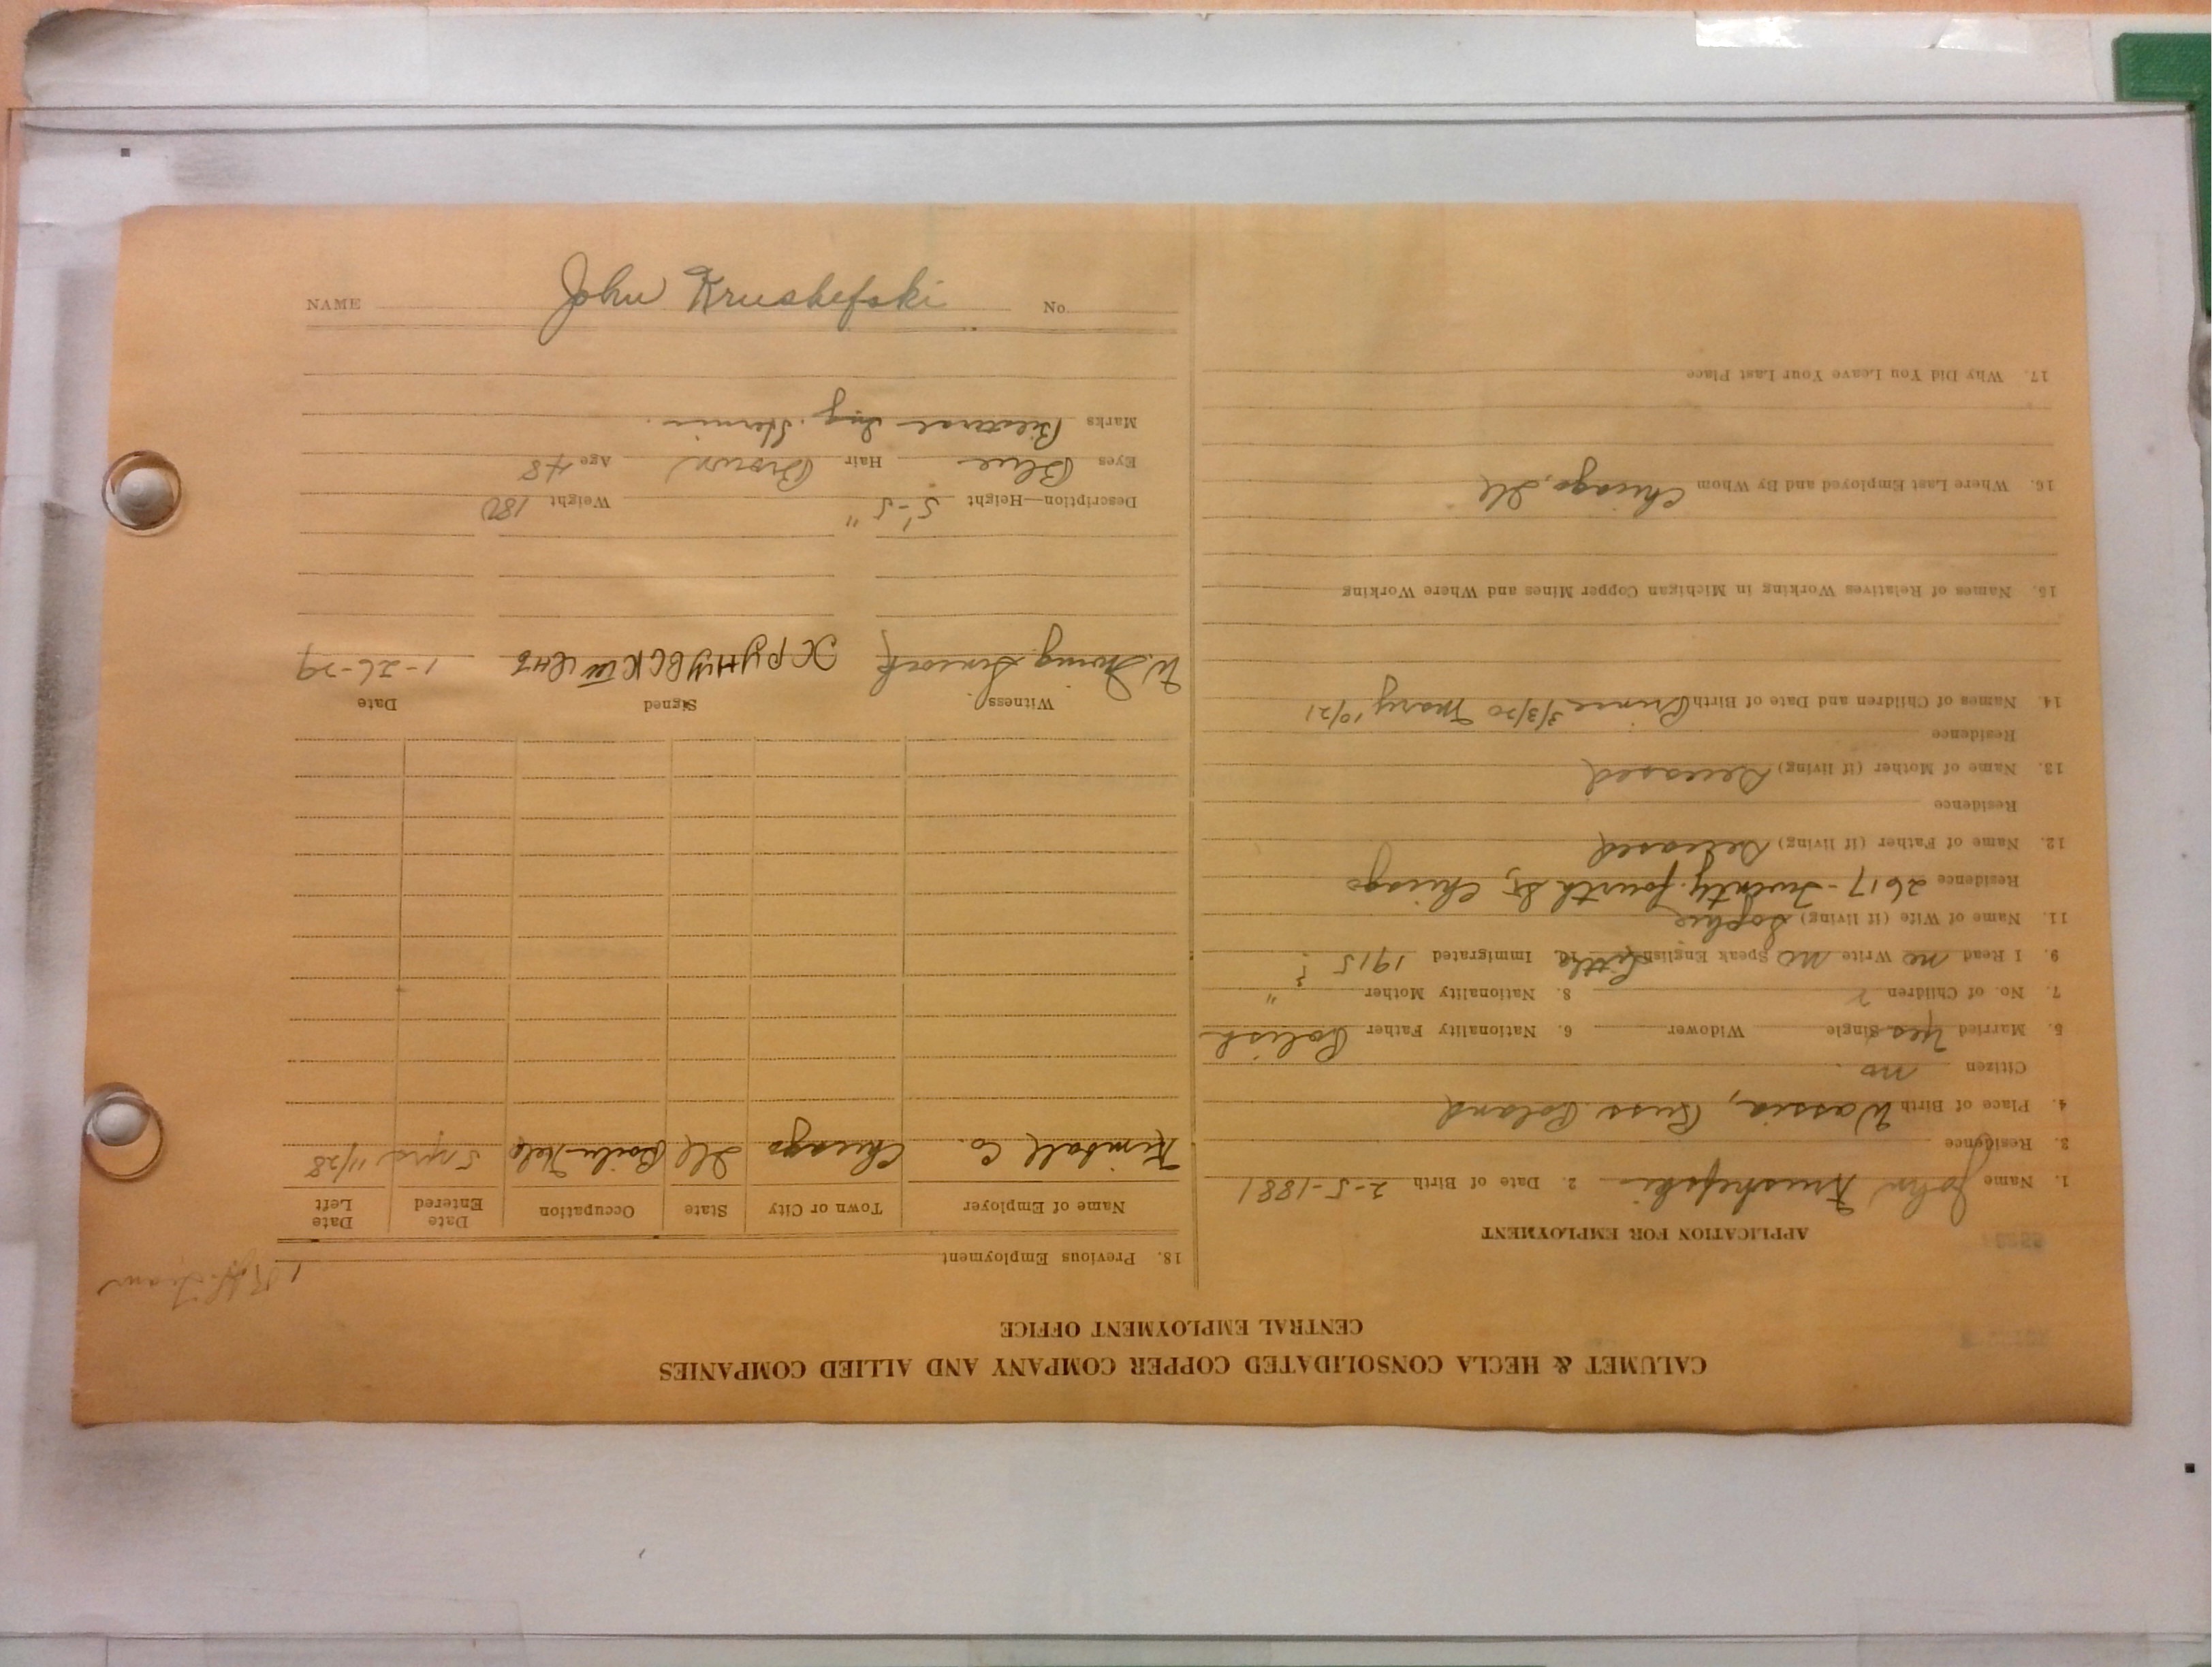 CALUMET & HECLA CONSOLIDATED COPPER COMPANY AND ALLIED COMPANIES
CENTRAL EMPLOYMENT OFFICE
APPLICATION FOR EMPLOYMENT
1. Name John Krushefski 2. Date of Birth 2-5-1881
3. Residence
4. Place of Birth Wassia, Russ Poland
Citizen no.
5. Married Yes Single Widower 6. Nationality Father Polish
7. No. of Children 2 8. Nationality Mother "
9. I Read no Write no Speak English Little 10. Immigrated 1915 ?
11. Name of Wife (if living) Sophie
Residence 2617 - Twenty fourth St, Chicago
12. Name of Father (if living) Deceased
Residence
13. Name of Mother (if living) Deceased
Residence
14. Names of Children and Date of Birth 3/3/20 Mary 10/21
15. Names of Relatives Working in Michigan Copper Mines and Where Working
16. Where Last Employed and By Whom Chicago, Ill
17. Why Did You Leave Your Last Place
18. Previous Employment
Name of Employer Town or City State Occupation Date Entered Date Left
Kimball Co. Chicago Ill Boiler Help 5 yrs 11/28
Witness Signed Date
1-26-29
Description—Height 5'-5" Weight 180
Eyes Blue Hair Brown Age 48
Marks Bilateral Ing. Hernia.
NAME John Krushefski No.